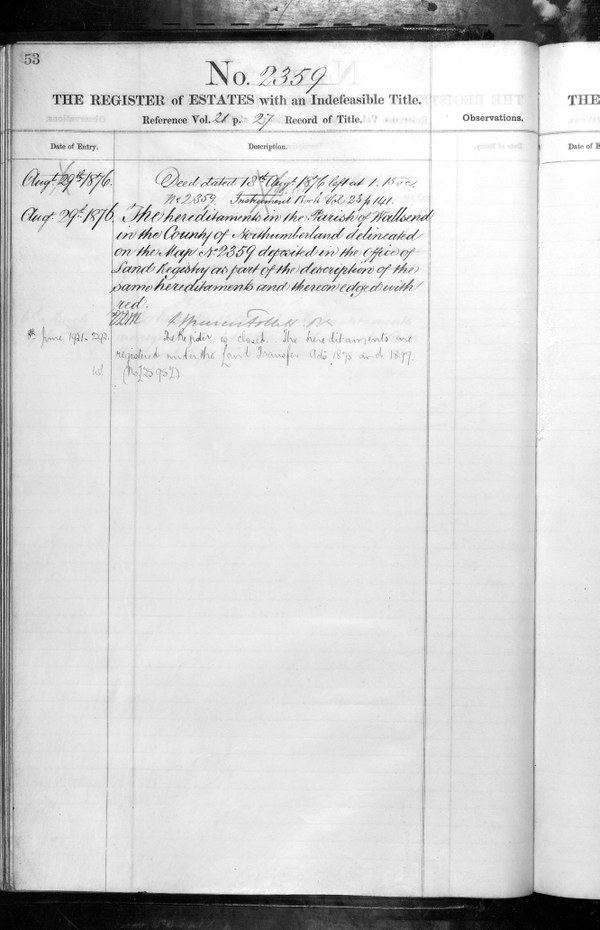 53
No. 2359
THE REGISTER of ESTATES with an Indefeasible Title.
Reference Vol. 21 p. 27 Record of Title.
Observations.
Date of Entry.
Description.
Augt. 29th 1876.
Deed dated 18th Augt. 1876 left at 1.15 o'c.
No 2359. Instrument Book Vol 23 p 141.
Augt 29th 1876.
The hereditaments in the Parish of Wallsend
in the County of Northumberland delineated
on the Map No 2359 deposited in the Office of
Land Registry as part of the description of the
same hereditaments and thereon edged with
red.
June 1921
The Register is closed. The hereditaments are
registered under the Land Transfer Acts 1875 and 1897.
THE
Date of E